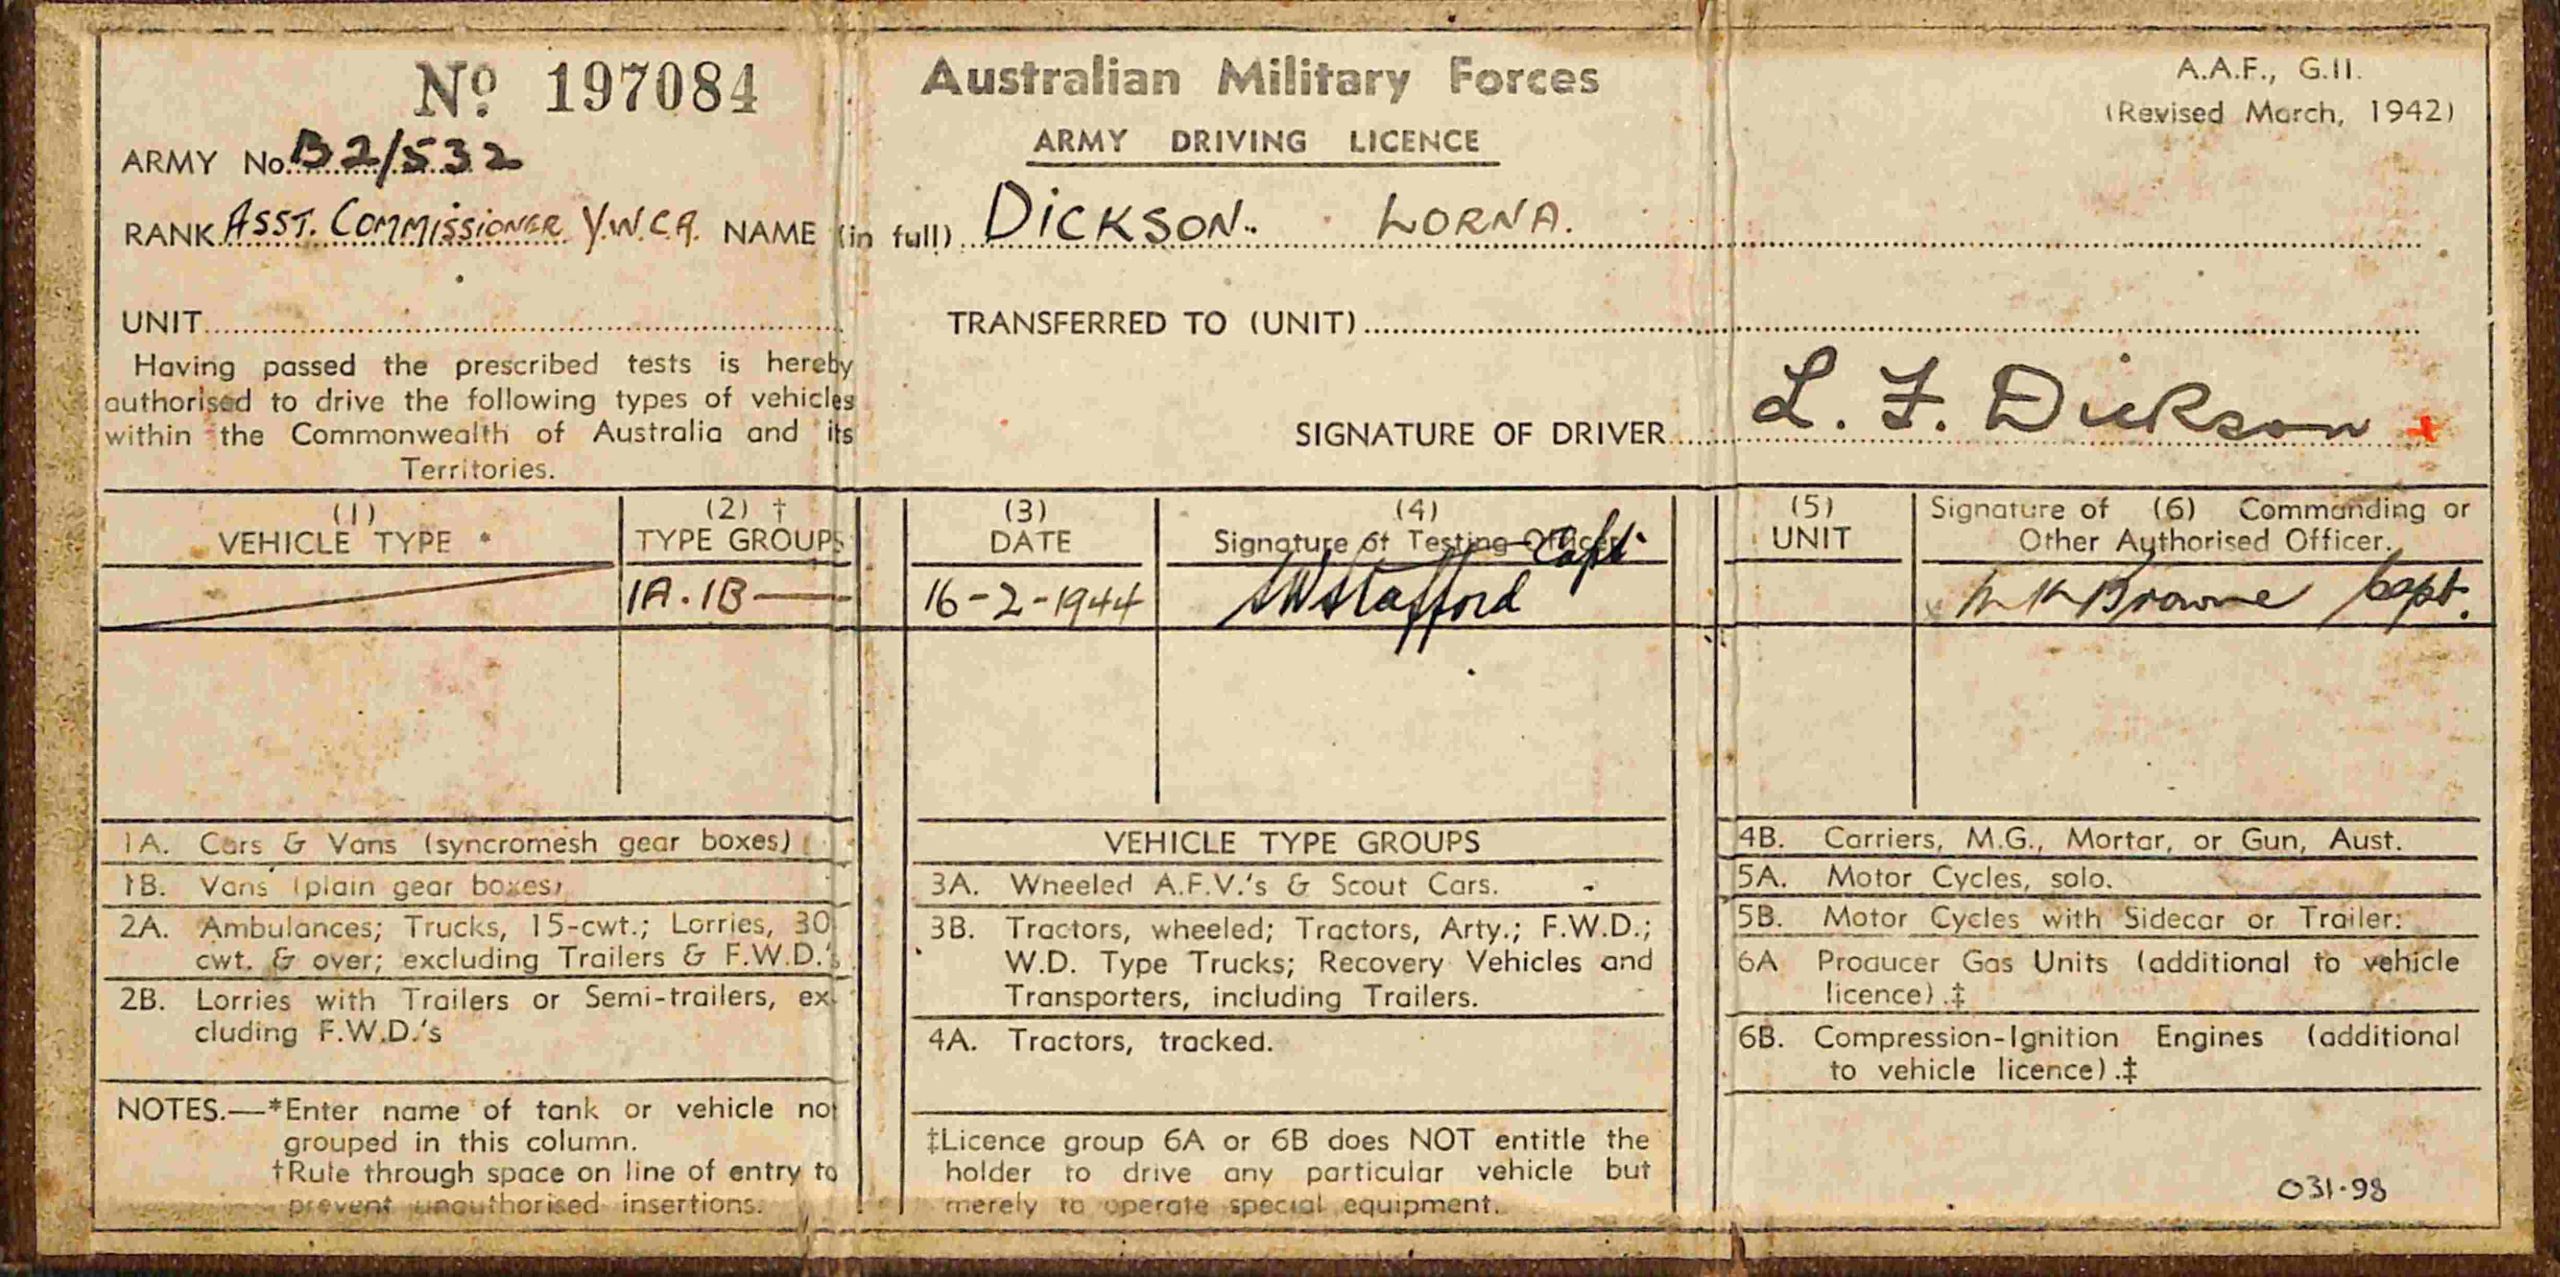 No 197084
Australian Military Forces
A.A.F., G.II.
ARMY DRIVING LICENCE
(Revised March, 1942)
ARMY No. B2/532
RANK ASST. COMMISSIONER Y.W.C.A. NAME (in full) DICKSON. LORNA.
UNIT TRANSFERRED TO (UNIT)
Having passed the prescribed tests is hereby
authorised to drive the following types of vehicles
within the Commonwealth of Australia and its
Territories.
SIGNATURE OF DRIVER L. F. Dickson
(1)
VEHICLE TYPE *
(2) †
TYPE GROUPS
(3)
DATE
(4)
Signature of Testing Officer
(5)
UNIT
Signature of (6) Commanding or
Other Authorised Officer.
1A.1B 16-2-1944 Stafford Capt. Browne Capt.
1A. Cars & Vans (syncromesh gear boxes)
1B. Vans (plain gear boxes)
2A. Ambulances; Trucks, 15-cwt.; Lorries, 30
cwt. & over; excluding Trailers & F.W.D.'s
2B. Lorries with Trailers or Semi-trailers, ex-
cluding F.W.D.'s
NOTES.—*Enter name of tank or vehicle not
grouped in this column.
†Rule through space on line of entry to
prevent unauthorised insertions.
VEHICLE TYPE GROUPS
3A. Wheeled A.F.V.'s & Scout Cars.
3B. Tractors, wheeled; Tractors, Arty.; F.W.D.;
W.D. Type Trucks; Recovery Vehicles and
Transporters, including Trailers.
4A. Tractors, tracked.
‡Licence group 6A or 6B does NOT entitle the
holder to drive any particular vehicle but
merely to operate special equipment.
4B. Carriers, M.G., Mortar, or Gun, Aust.
5A. Motor Cycles, solo.
5B. Motor Cycles with Sidecar or Trailer.
6A Producer Gas Units (additional to vehicle
licence).‡
6B. Compression-Ignition Engines (additional
to vehicle licence).‡
031.98